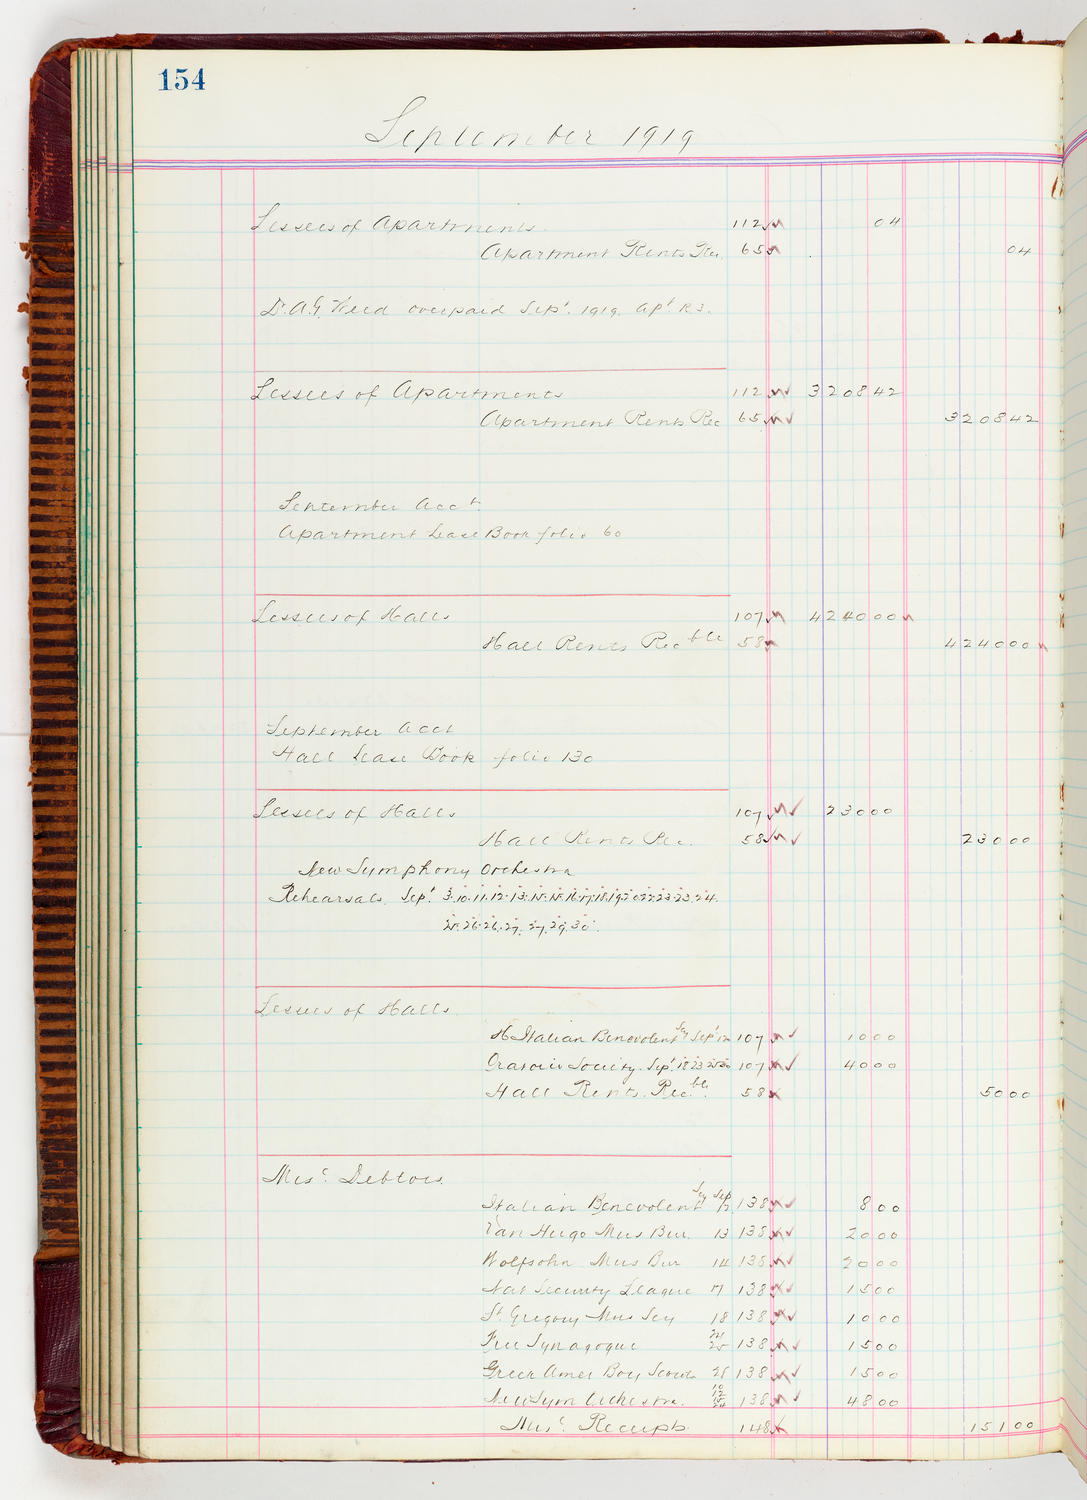 154
September 1919
Lessees of Apartments 112 04
Apartment Rents Rec. 65 04
Dr. A.G. Weed overpaid Sept. 1919. Apt. R3.
Lessees of Apartments 112 3208 42
Apartment Rents Rec 65 3208 42
September Acct.
Apartment Lease Book folio 60
Lessees of Halls 107 4240 00
Hall Rents Recble 58 4240 00
September Acct
Hall Lease Book folio 130
Lessees of Halls 107 230 00
Hall Rents Rec. 58 230 00
New Symphony Orchestra
Rehearsals. Sept. 3. 10. 11. 12. 13. 15. 15. 16. 17. 18. 19. 20. 22. 23. 23. 24.
25. 26. 26. 27. 27. 29. 30.
Lessees of Halls
Italian Benevolent Sey Sept 12 107 10 00
Oratorio Society. Sept. 18 23 107 40 00
Hall Rents. Recble. 58 50 00
Misc. Debtors
Italian Benevolent Sey Sep 12 138 8 00
Van Hugo Mus Bur. 13 138 20 00
Wolfsohn Mus Bur 14 138 20 00
Nat Security League 17 138 15 00
St. Gregory Mus Sey 18 138 10 00
Free Synagogue 24 25 138 15 00
Greek Amer Boy Scouts 28 138 15 00
New Sym Orchestra. 138 48 00
Misc. Receipts 148 151 00